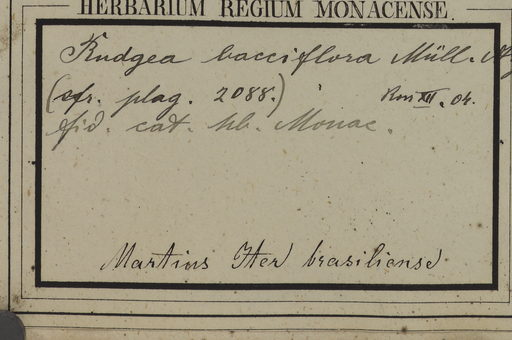 HERBARIUM REGIUM MONACENSE.
Rudgea bacciflora Müll. Arg
(cfr. plag. 2088.) Rm XII. 04.
fid. cat. hb. Monac.
Martius Iter brasiliense